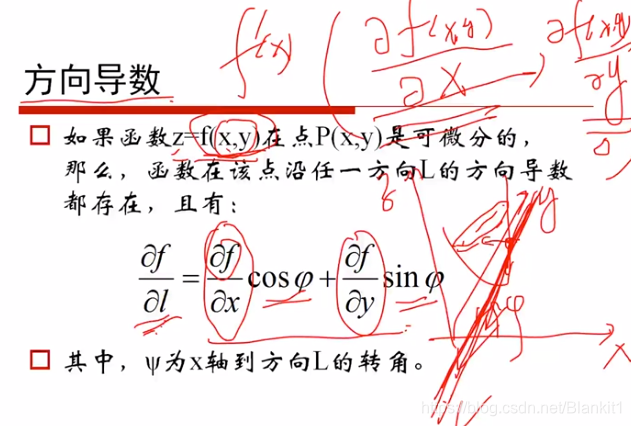 f'(x) ( ∂f(x,y) / ∂x ∂f(x,y) / ∂y
方向导数
如果函数z=f(x,y)在点P(x,y)是可微分的，
那么，函数在该点沿任一方向L的方向导数
都存在，且有：
∂f/∂l = ∂f/∂x cosφ + ∂f/∂y sinφ
y
φ
x
其中，ψ为x轴到方向L的转角。
https://blog.csdn.net/Blankit1